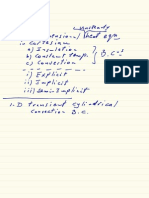 Unsteady
dimensional heat eqn
in Cartesian
a) Insulation
b) Constant temp. B.Cs
c) Convection
i) Explicit
ii) Implicit
iii) Semi Implicit
1-D transient cylindrical
Convection B.C.